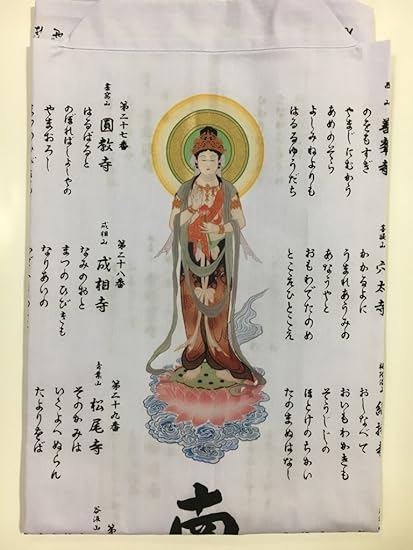 西山
善峯寺
のをもすぎ
やまじにむかう
あめのそら
よしみねよりも
はるるゆうだち
第二十七番
書寫山
圓教寺
はるばると
のぼればしょしゃの
やまおろし
菩提山
穴太寺
かかるよに
うまれあうみの
あなうやと
おもわでたのめ
とこえひとこえ
第二十八番
成相山
成相寺
なみのおと
まつのひびきも
なりあいの
おしなべて
おいもわかきも
そうじじの
ほとけのちかい
たのまぬはなし
第二十九番
青葉山
松尾寺
そのかみは
いくよへぬらん
たよりをば
南
第
谷汲山